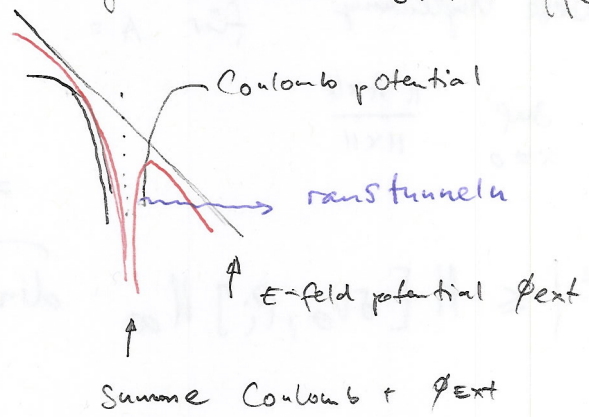 Coulomb potential
raustunneln
E-feld potential ϕext
Summe Coulomb + ϕExt